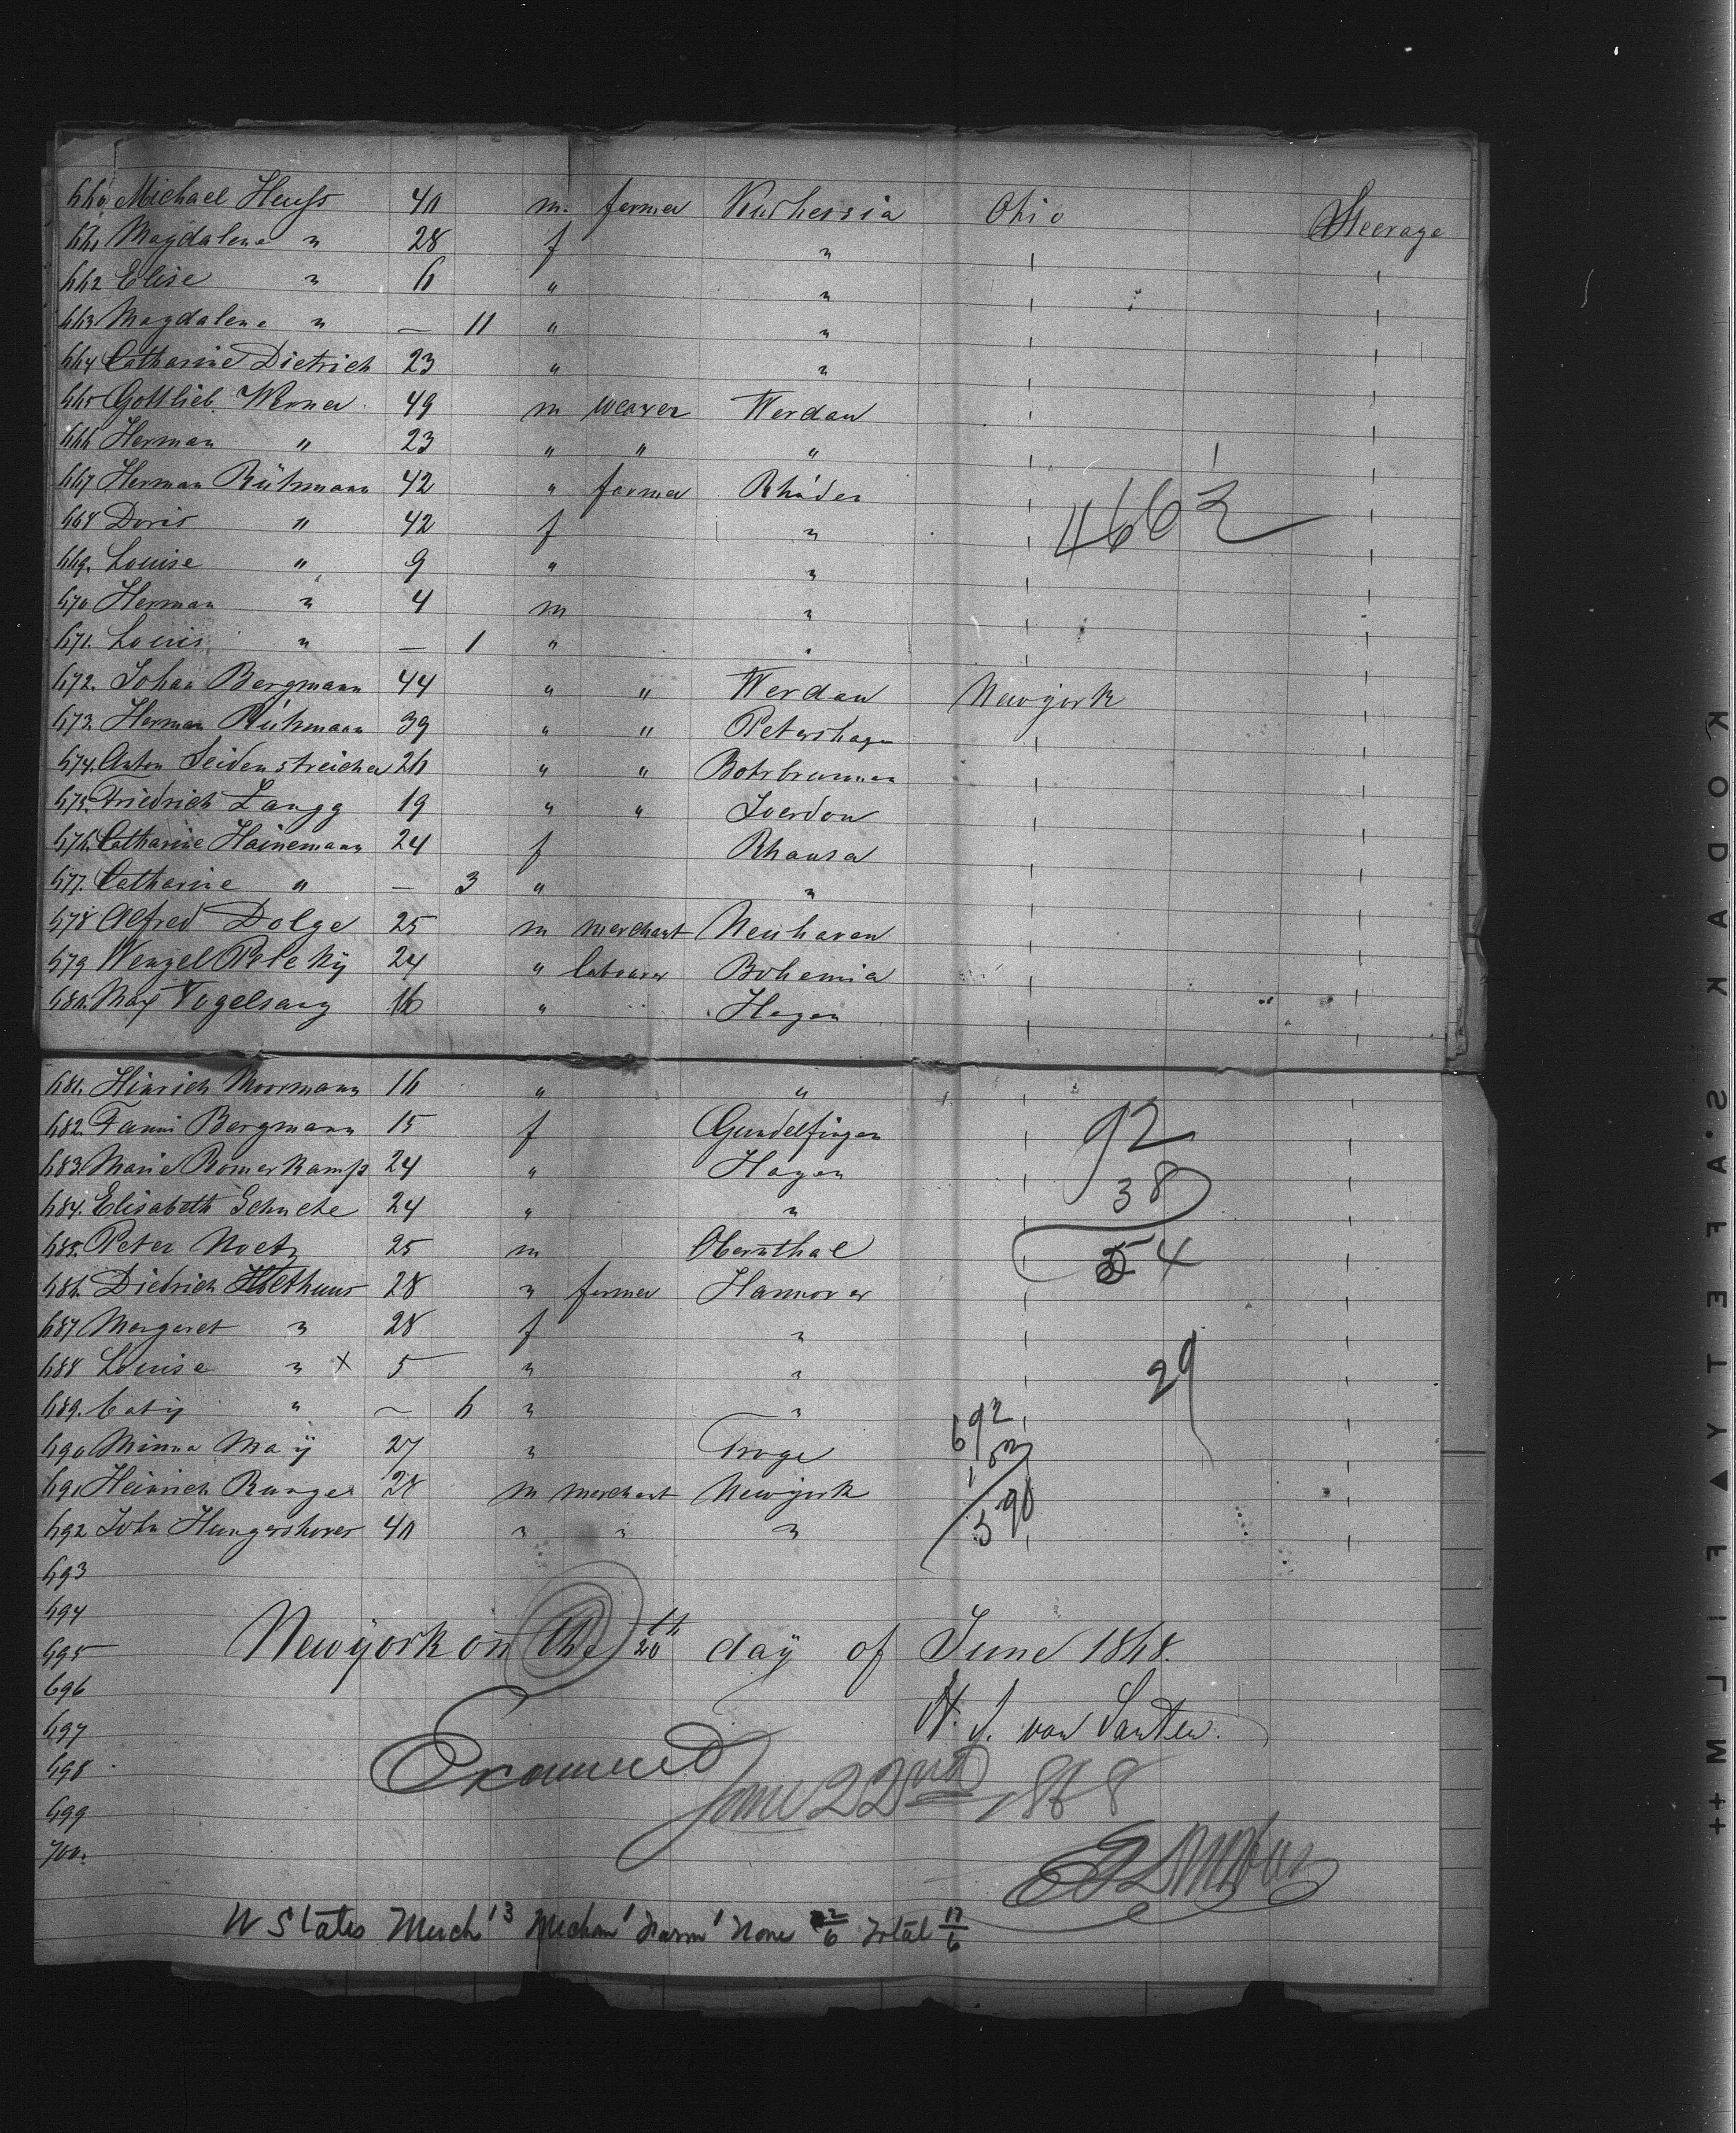 660 Michael Heuss 40 m. farmer Kurhessia Ohio Steerage
661 Magdalena " 28 f "
662 Elise " 6 " "
663 Magdalena " — 11 " "
664 Catharine Dietrich 23 " "
665 Gottlieb Werner 49 m weaver Werdau
666 Herman " 23 " " "
667 Herman Rühmann 42 " farmer Rhäden
668 Doris " 42 f "
669. Louise " 9 " "
670 Herman " 4 m "
671. Louis " — 1 " "
4662
672. Johan Bergmann 44 " " Werdau Newyork
673. Herman Rühmann 39 " " Petershagen
674. Anton Seidenstreicher 26 " " Bohrbrunnen
675. Friedrich Langg 19 " " Iverdon
676. Catharine Hainemann 24 f Rhausa
677. Catharine " — 3 " "
678 Alfred Dolge 25 m merchant Neuhaven
679 Wenzel 24 " labourer Bohemia
680. Max Vogelsang 16 " Hagen
681. Hinrich Moormann 16 " "
682. Fanni Bergmann 15 f Gundelfingen
683. Marie Romerkamp 24 " Hagen
684. Elisabeth Schucke 24 " "
685. Peter Noetz 25 m Obernthal
686. Diedrich Holthuus 28 " farmer Hannover
687 Margaret " 28 f "
688 Louise " x 5 " "
689. Caty " — 6 " "
690 Minna Maÿ 27 " Troge
691 Heinrich Runge 28 m merchant Newyork
692 John Hungershover 40 " " "
92
38
54
29
692
102
590
693
694
695 Newÿork on the 20th day of June 1868.
696
697 H. J. van Santen.
698 Examined June 22nd 1868
699
700.
U States Merch 13 Mechan 1 Farm 1 None 2/6 Total 17/6
KODAK S.A.F.E.T.Y ▲ F I L M ++